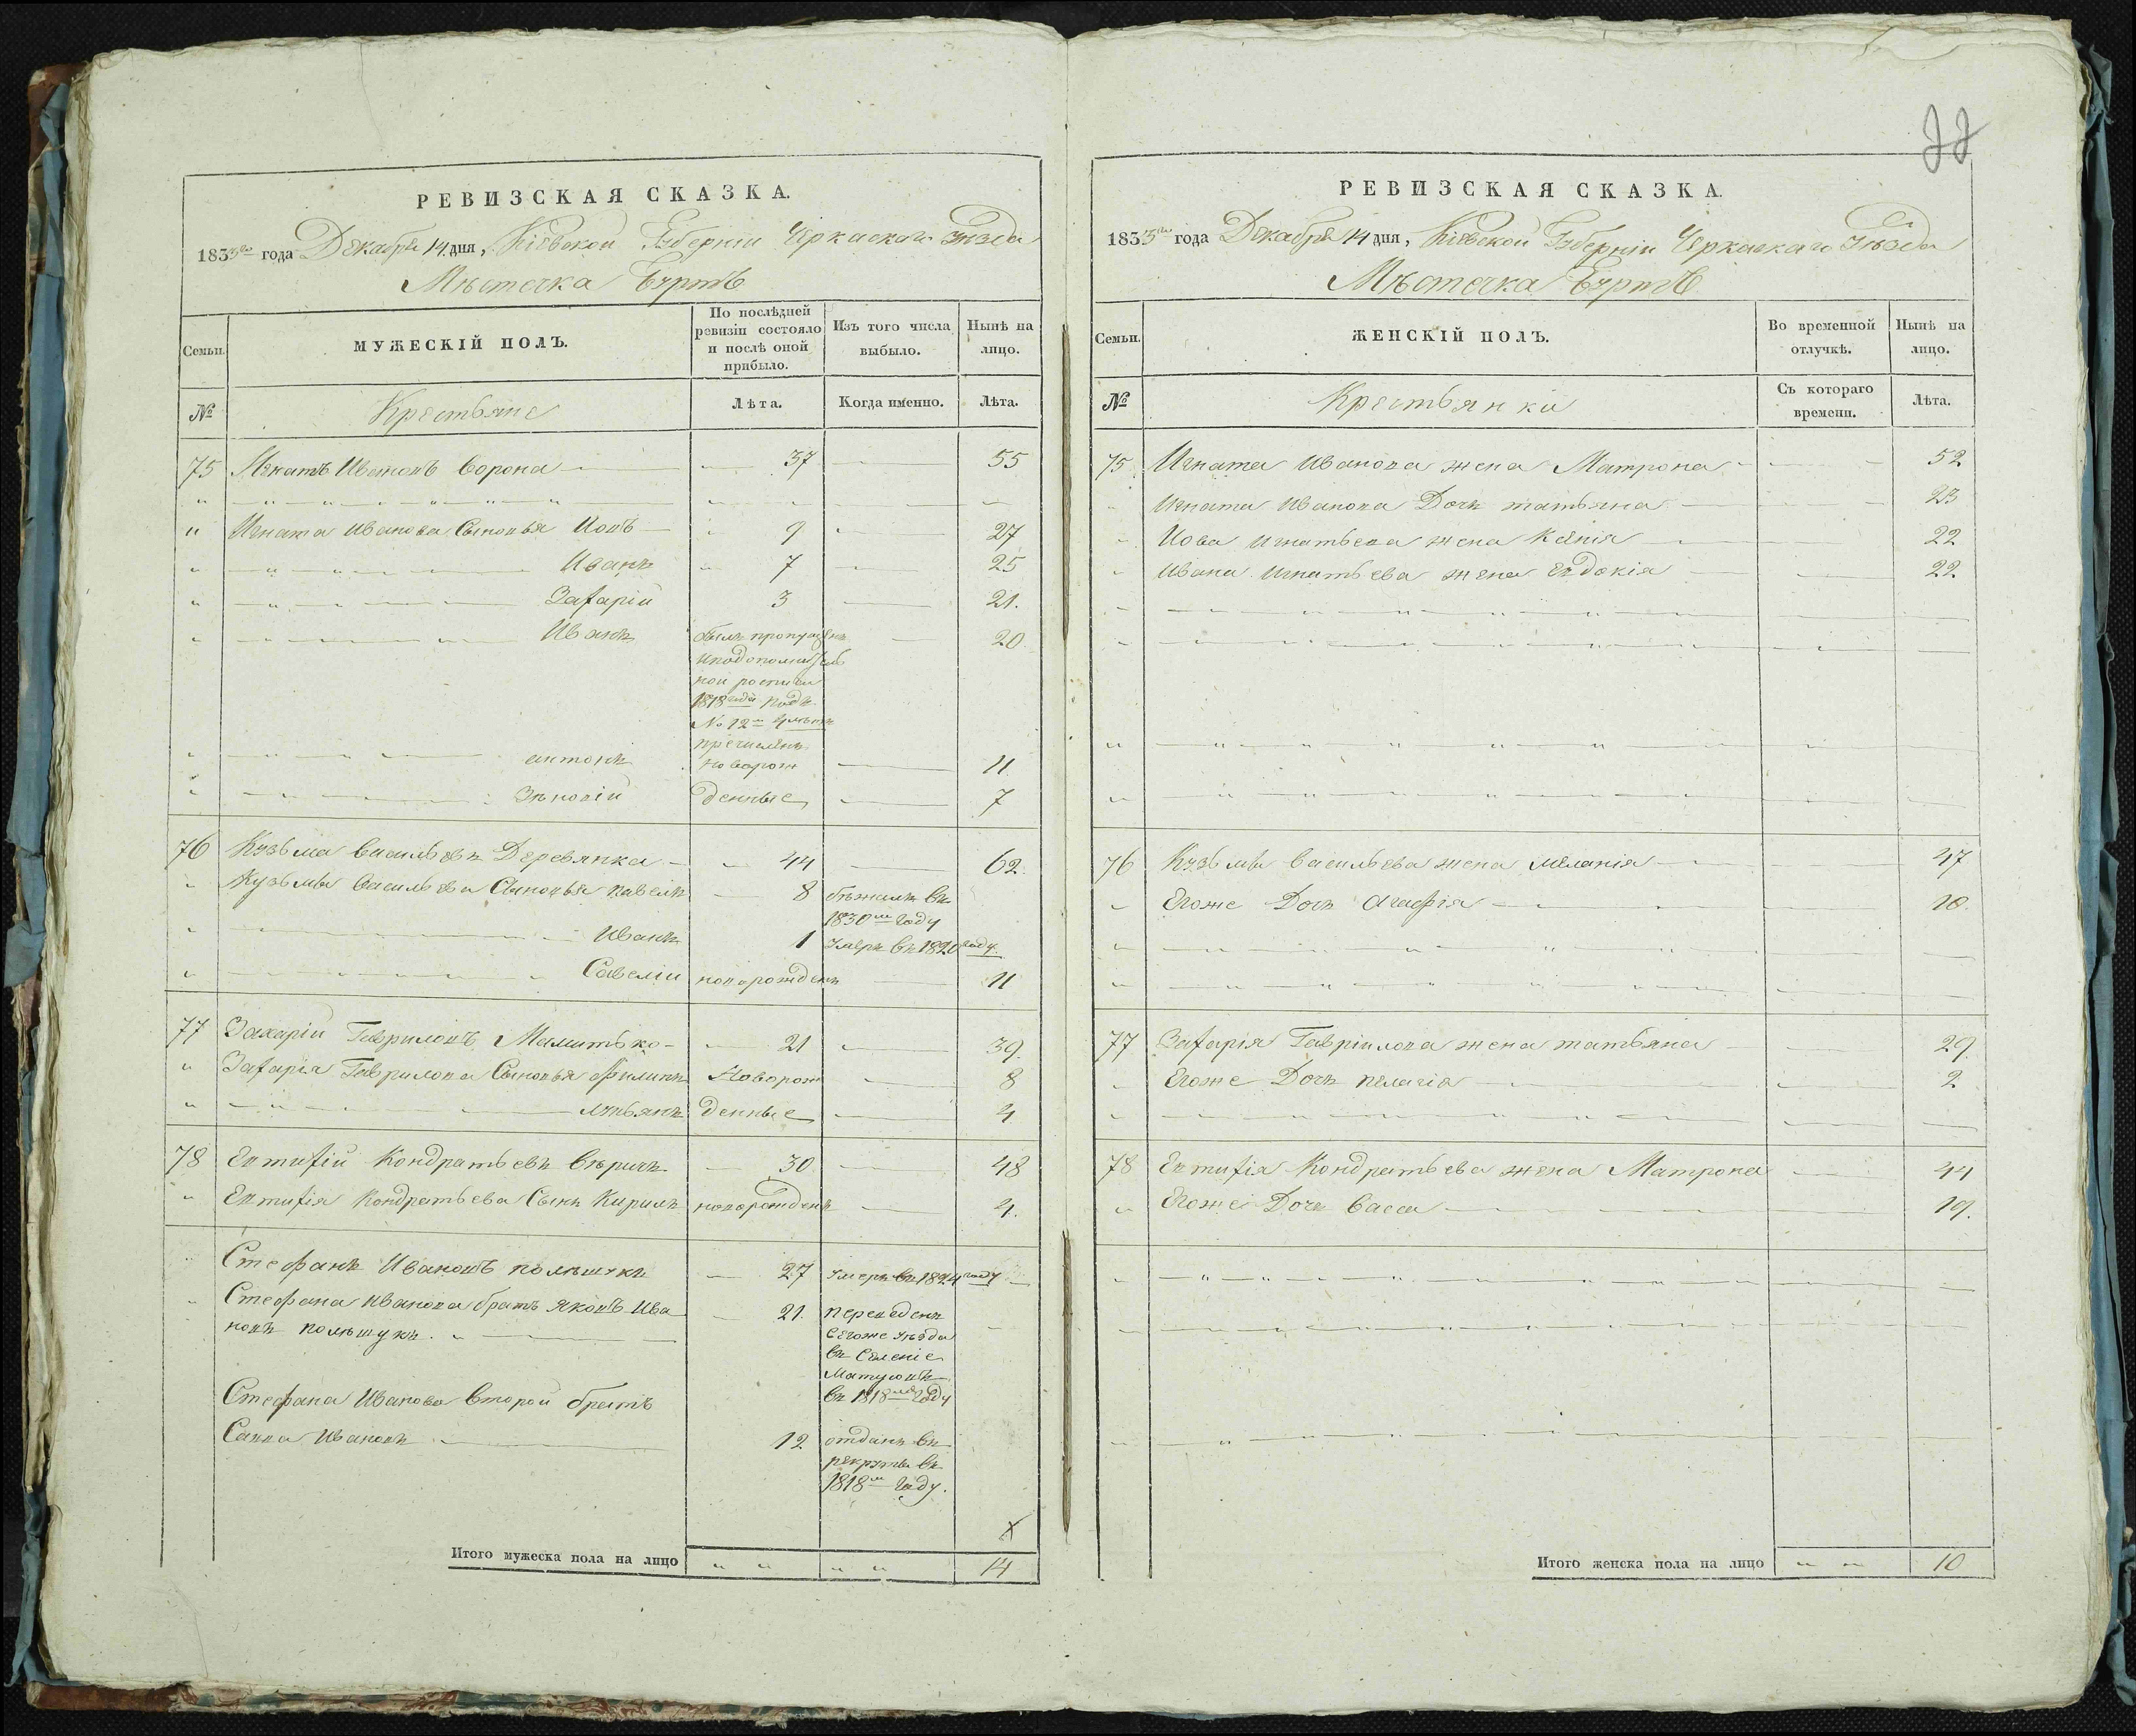 РЕВИЗСКАЯ СКАЗКА.
1835го года Декабря 14 дня, Кіевской Губерніи Черкаскаго Уѣзда
Мѣстечка
Семьи.
МУЖЕСКІЙ ПОЛЪ.
По послѣдней ревизіи состояло и послѣ оной прибыло.
Изъ того числа выбыло.
Нынѣ на лицо.
№
Крестьяне
Лѣта.
Когда именно.
Лѣта.
75 Игнатъ Ивановъ Ворона 37 55
Игната Иванова Сыновья Іовъ 9 27
Иванъ 7 25
Захарій 3 21.
Иванъ былъ пропущенъ 20
1818 года подъ
№ 12
антонъ новорож 11
Зѣновій денные 7
76 Кузьма Васильевъ Деревянка 44 62.
Кузьмы Васильева Сыновья павелъ 8 бѣжалъ въ
1830м году
Иванъ 1 Умеръ въ 1820 году.
Савелій новорожденъ 11
77 Захарій Гавриловъ 21 39.
Захарія Гаврилова Сыновья Филипъ Новорож 8
лукьянъ денные 4
78 Евтихій Кондратьевъ 30 48
Евтихія Кондратьева Сынъ Кирилъ новорожденъ 4.
Стефанъ Ивановъ полѣщукъ 27 Умеръ въ 1824 году
Стефана Иванова братъ Яковъ Ива 21. переведенъ
новъ полѣщукъ.
Сегоже Уѣзда
въ Селеніе
Матусовъ
въ 1818м году
Стефана Иванова второй братъ
Савва Ивановъ 12 отданъ въ
рекруты въ
1818м году.
Итого мужеска пола на лицо 14
РЕВИЗСКАЯ СКАЗКА.
1835го года Декабря 14 дня, Кіевской Губерніи Черкаскаго Уѣзда
Мѣстечка
Семьи.
ЖЕНСКІЙ ПОЛЪ.
Во временной отлучкѣ.
Нынѣ на лицо.
№
Крестьянки
Съ котораго времени.
Лѣта.
75 Игната Иванова жена Матрона 52
Игната Иванова Дочь татьяна 23
Іова Игнатьева жена Ксенія 22
Ивана Игнатьева жена Евдокія 22
76 Кузьмы Васильева жена меланія 47
Егоже Дочь Агафія 10.
77 Захарія Гаврилова жена татьяна 29.
Егоже Дочь пелагія 2
78 Евтихія Кондратьева жена Матрона 44
Егоже Дочь Васса 19.
Итого женска пола на лицо 10